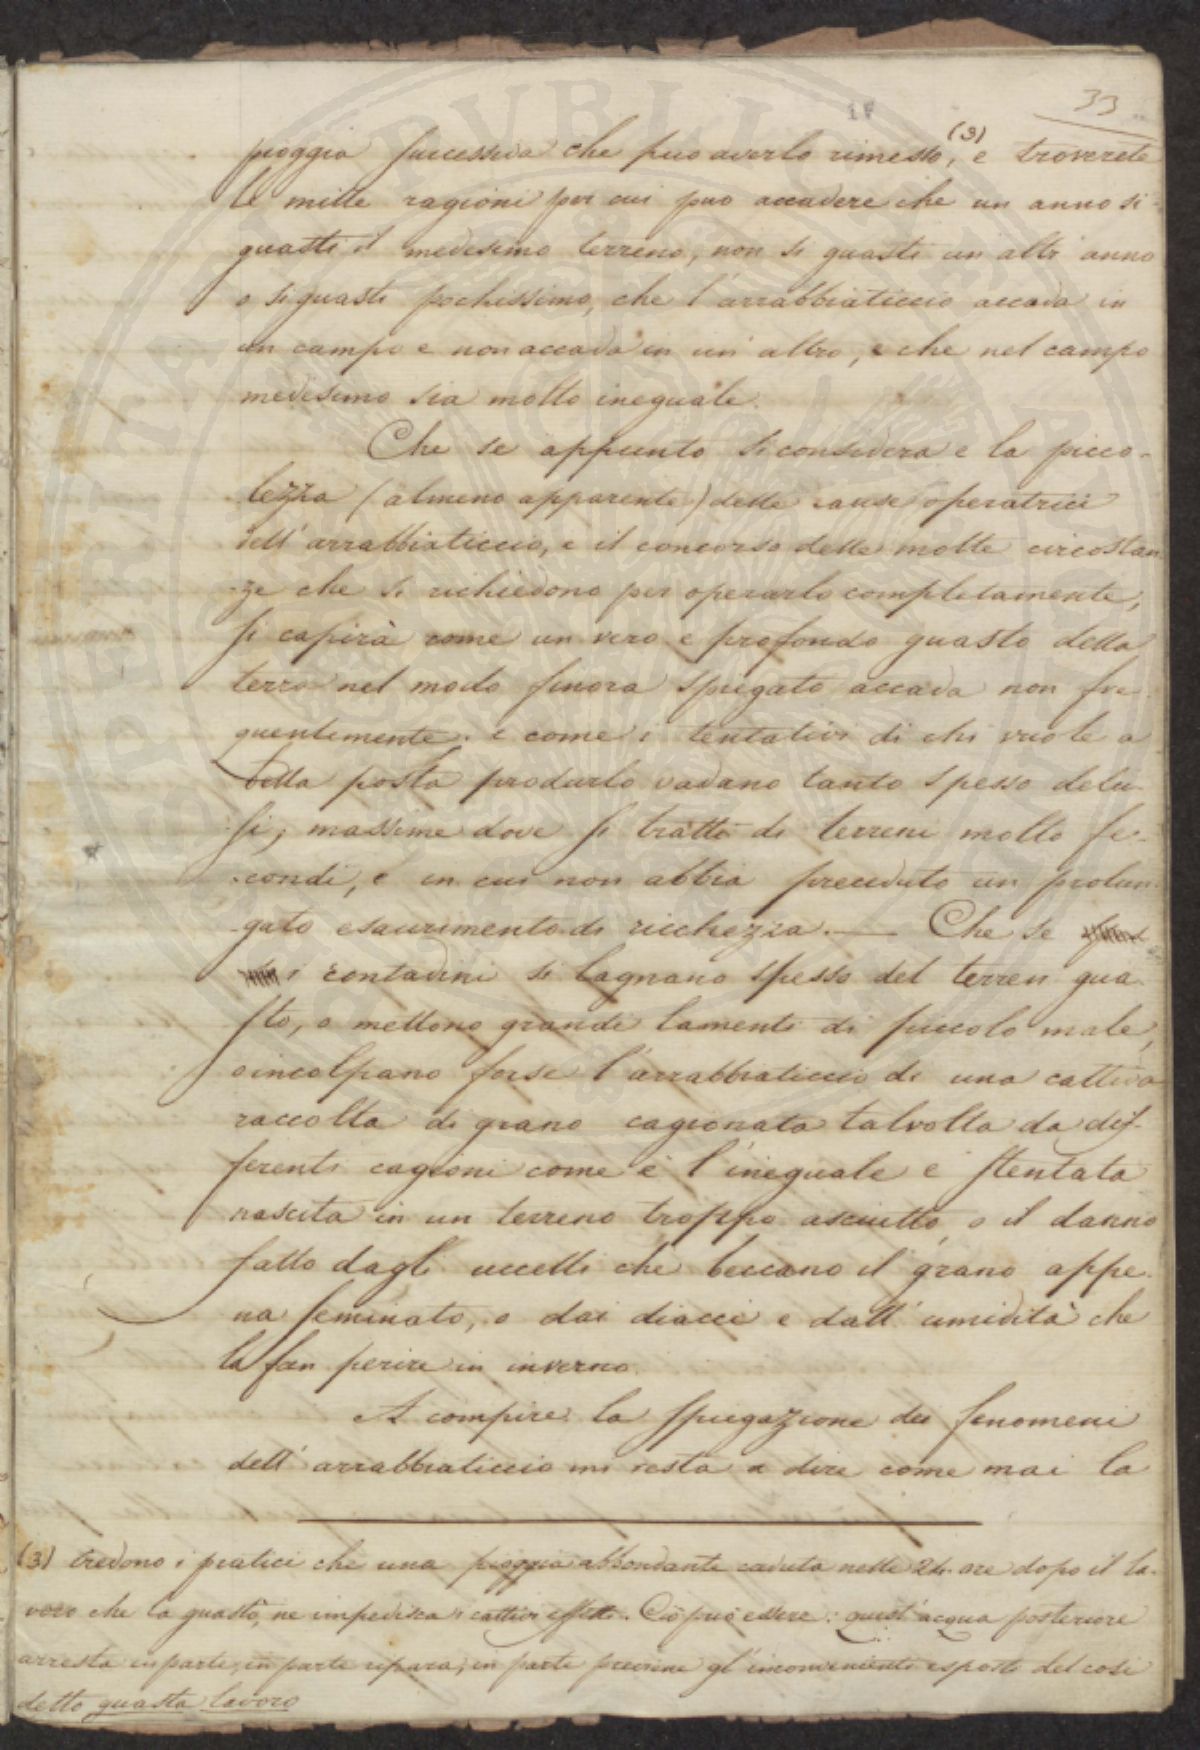 33
pioggia successiva che può averlo rimesso, (3) e troverete
le mille ragioni per cui può accadere che un anno si
guasti il medesimo terreno, non si guasti un altr' anno
o si guasti pochissimo, che l'arrabbiaticcio accada in
un campo e non accada in un' altro, e che nel campo
medesimo sia molto ineguale.
Che se appunto si considera e la picco-
lezza (almeno apparente) delle cause operatrici
dell' arrabbiaticcio, e il concorso delle molte circostan
-ze che si richiedono per operarlo completamente,
si capirà come un vero e profondo guasto della
terra nel modo finora spiegato accada non fre
quentemente. e come i tentativi di chi vuole a
bella posta produrlo vadano tanto spesso delu-
si, massime dove si tratti di terreni molto fe-
-condi, e in cui non abbia preceduto un prolun-
-gato esaurimento di ricchezza. — Che se
i contadini si lagnano spesso del terren gua-
sto, o mettono grandi lamenti di piccolo male,
o incolpano forse l'arrabbiaticcio di una cattiva
raccolta di grano cagionata talvolta da dif-
ferenti cagioni come è l'ineguale e stentata
nascita in un terreno troppo asciutto, o il danno
fatto dagli uccelli che beccano il grano appe-
na seminato, o dai diacci e dall' umidità che
lo fan perire in inverno.
A compire la spiegazione dei fenomeni
dell' arrabbiaticcio mi resta a dire come mai la
(3) Credono i pratici che una pioggia abbondante caduta nelle 24. ore dopo il la-
voro che la guastò, ne impedisca i cattivi effetti. Ciò può essere: quest' acqua posteriore
arresta in parte, in parte ripara, in parte previene gl' inconvenienti esposti del così
detto guasta lavoro